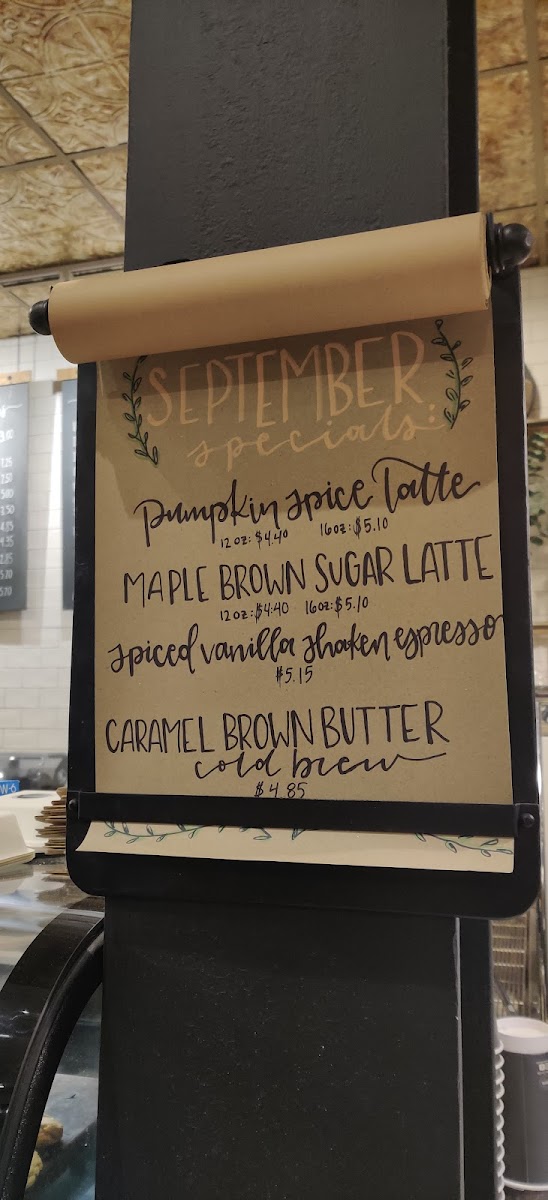 SEPTEMBER
specials:
pumpkin spice latte
12oz: $4.40 16oz: $5.10
MAPLE BROWN SUGAR LATTE
12oz: $4.40 16oz: $5.10
spiced vanilla shaken espresso
$5.15
CARAMEL BROWN BUTTER
cold brew
$4.85